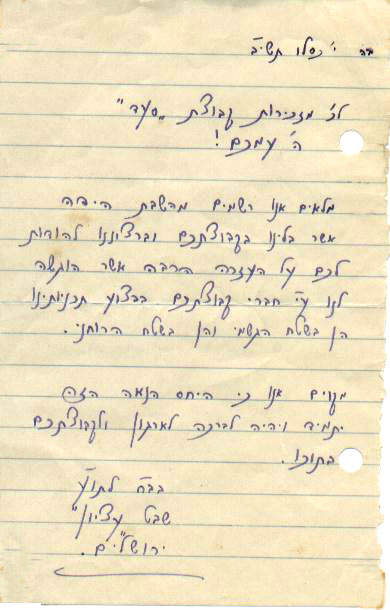 בה י' כסלו תשי"ב
לכ' מזכירות קבוצת "סעד"
ה' עמכם!
מלאים אנו רשמים מהשבת היפה
אשר בלינו בקבוצתכם וברצוננו להודות
לכם על העזרה הרבה אשר הוגשה
לנו ע"י חברי קבוצתכם בבצוע תכניותינו
הן בשטח הגשמי והן בשטח הרוחני.
מקוים אנו כי היחס הנאה הזה
יתמיד ויהיה לברכה לארגון ולקבוצתכם
בתוכו.
בבח לתו"ע
שבט עציון"
ירושל"ים.